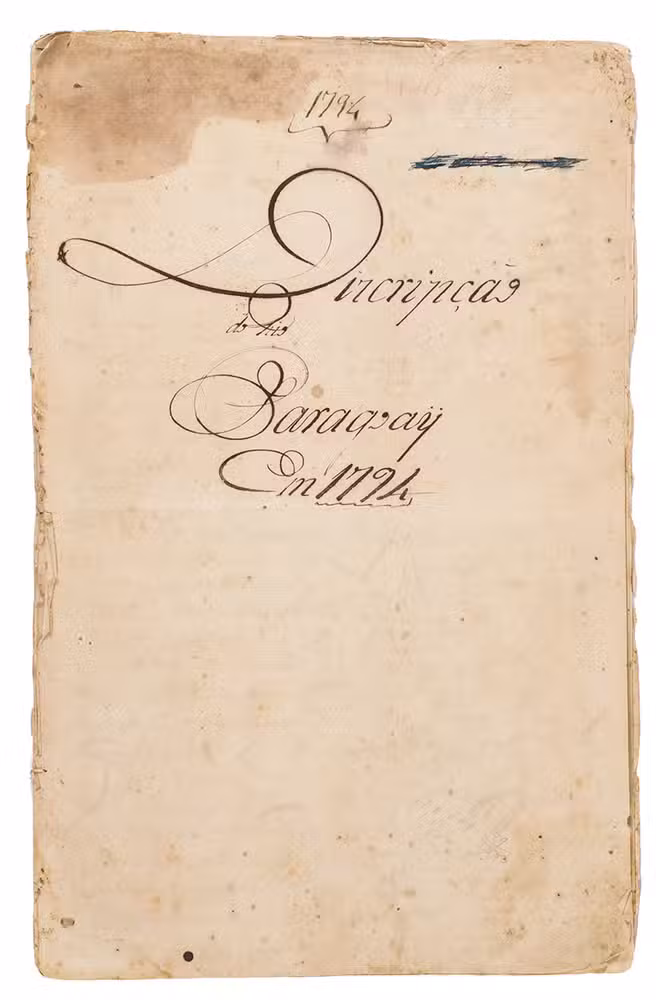 1794
Discripçaõ
do Rio
Paraguaÿ
Em 1794